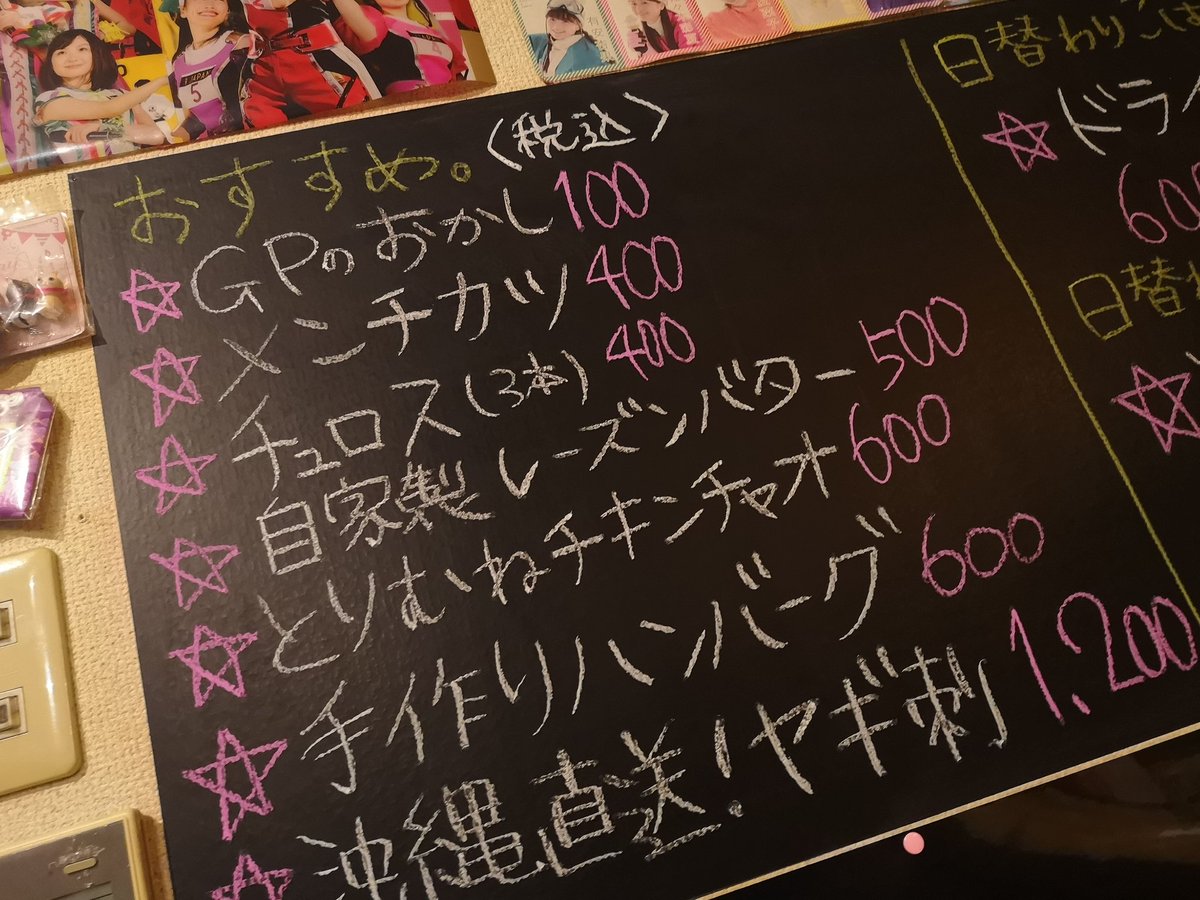 おすすめ。〈税込〉
☆GPのおかし 100
☆メンチカツ 400
☆チュロス(3本) 400
☆自家製レーズンバター 500
☆とりむねチキンチャオ 600
☆手作りハンバーグ 600
☆沖縄直送!ヤギ刺 1,200
日替わりごは
☆ドラ
600
日替わ
☆
JAPAN
5